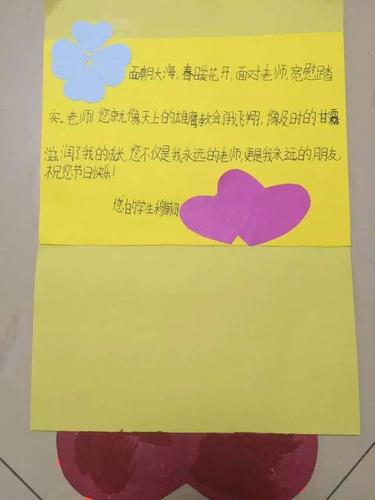 面朝大海，春暖花开，面对老师，宽慰踏
实。老师！您就像天上的雄鹰教会了我飞翔；像及时的甘霖
滋润了我的成长，您不仅是我永远的老师，更是我永远的朋友，
祝您节日快乐！
您的学生